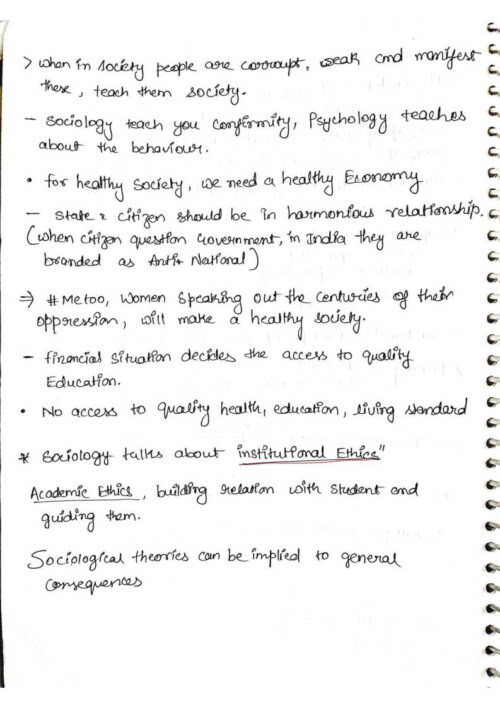 > when in society people are corrupt, weak and manifest
these, teach them society.
- Sociology teach you confirmity, Psychology teaches
about the behaviour.
• for healthy Society, we need a healthy Economy
- State & citizen should be in harmonious relationship.
(when citizen question Government, in India they are
branded as Anti National)
⇒ #Metoo, Women Speaking out the centuries of their
oppression, will make a healthy society.
- financial situation decides the access to quality
Education.
• No access to quality health, education, living standard
* Sociology talks about institutional Ethics"
Academic Ethics, building relation with student and
guiding them.
Sociological theories can be implied to general
consequences